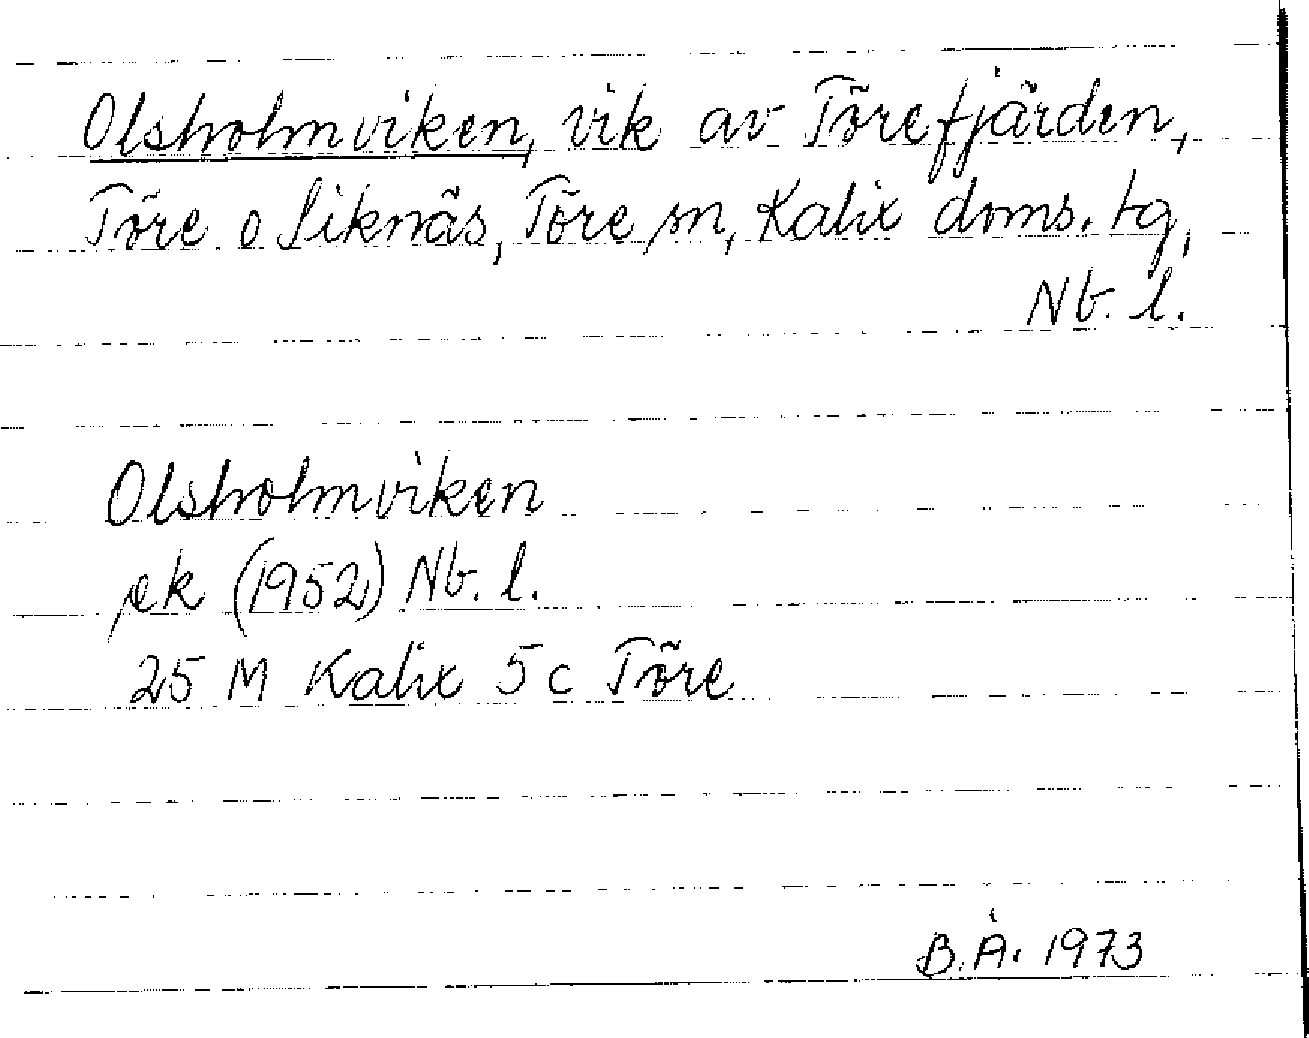 Olsholmviken, vik av Törefjärden,
Töre o Siknäs, Töre sn, Kalix doms. tg,
Nb. l.
Olsholmviken
ek (1952) Nb. l.
25 M Kalix 5c Töre
B.Å. 1973